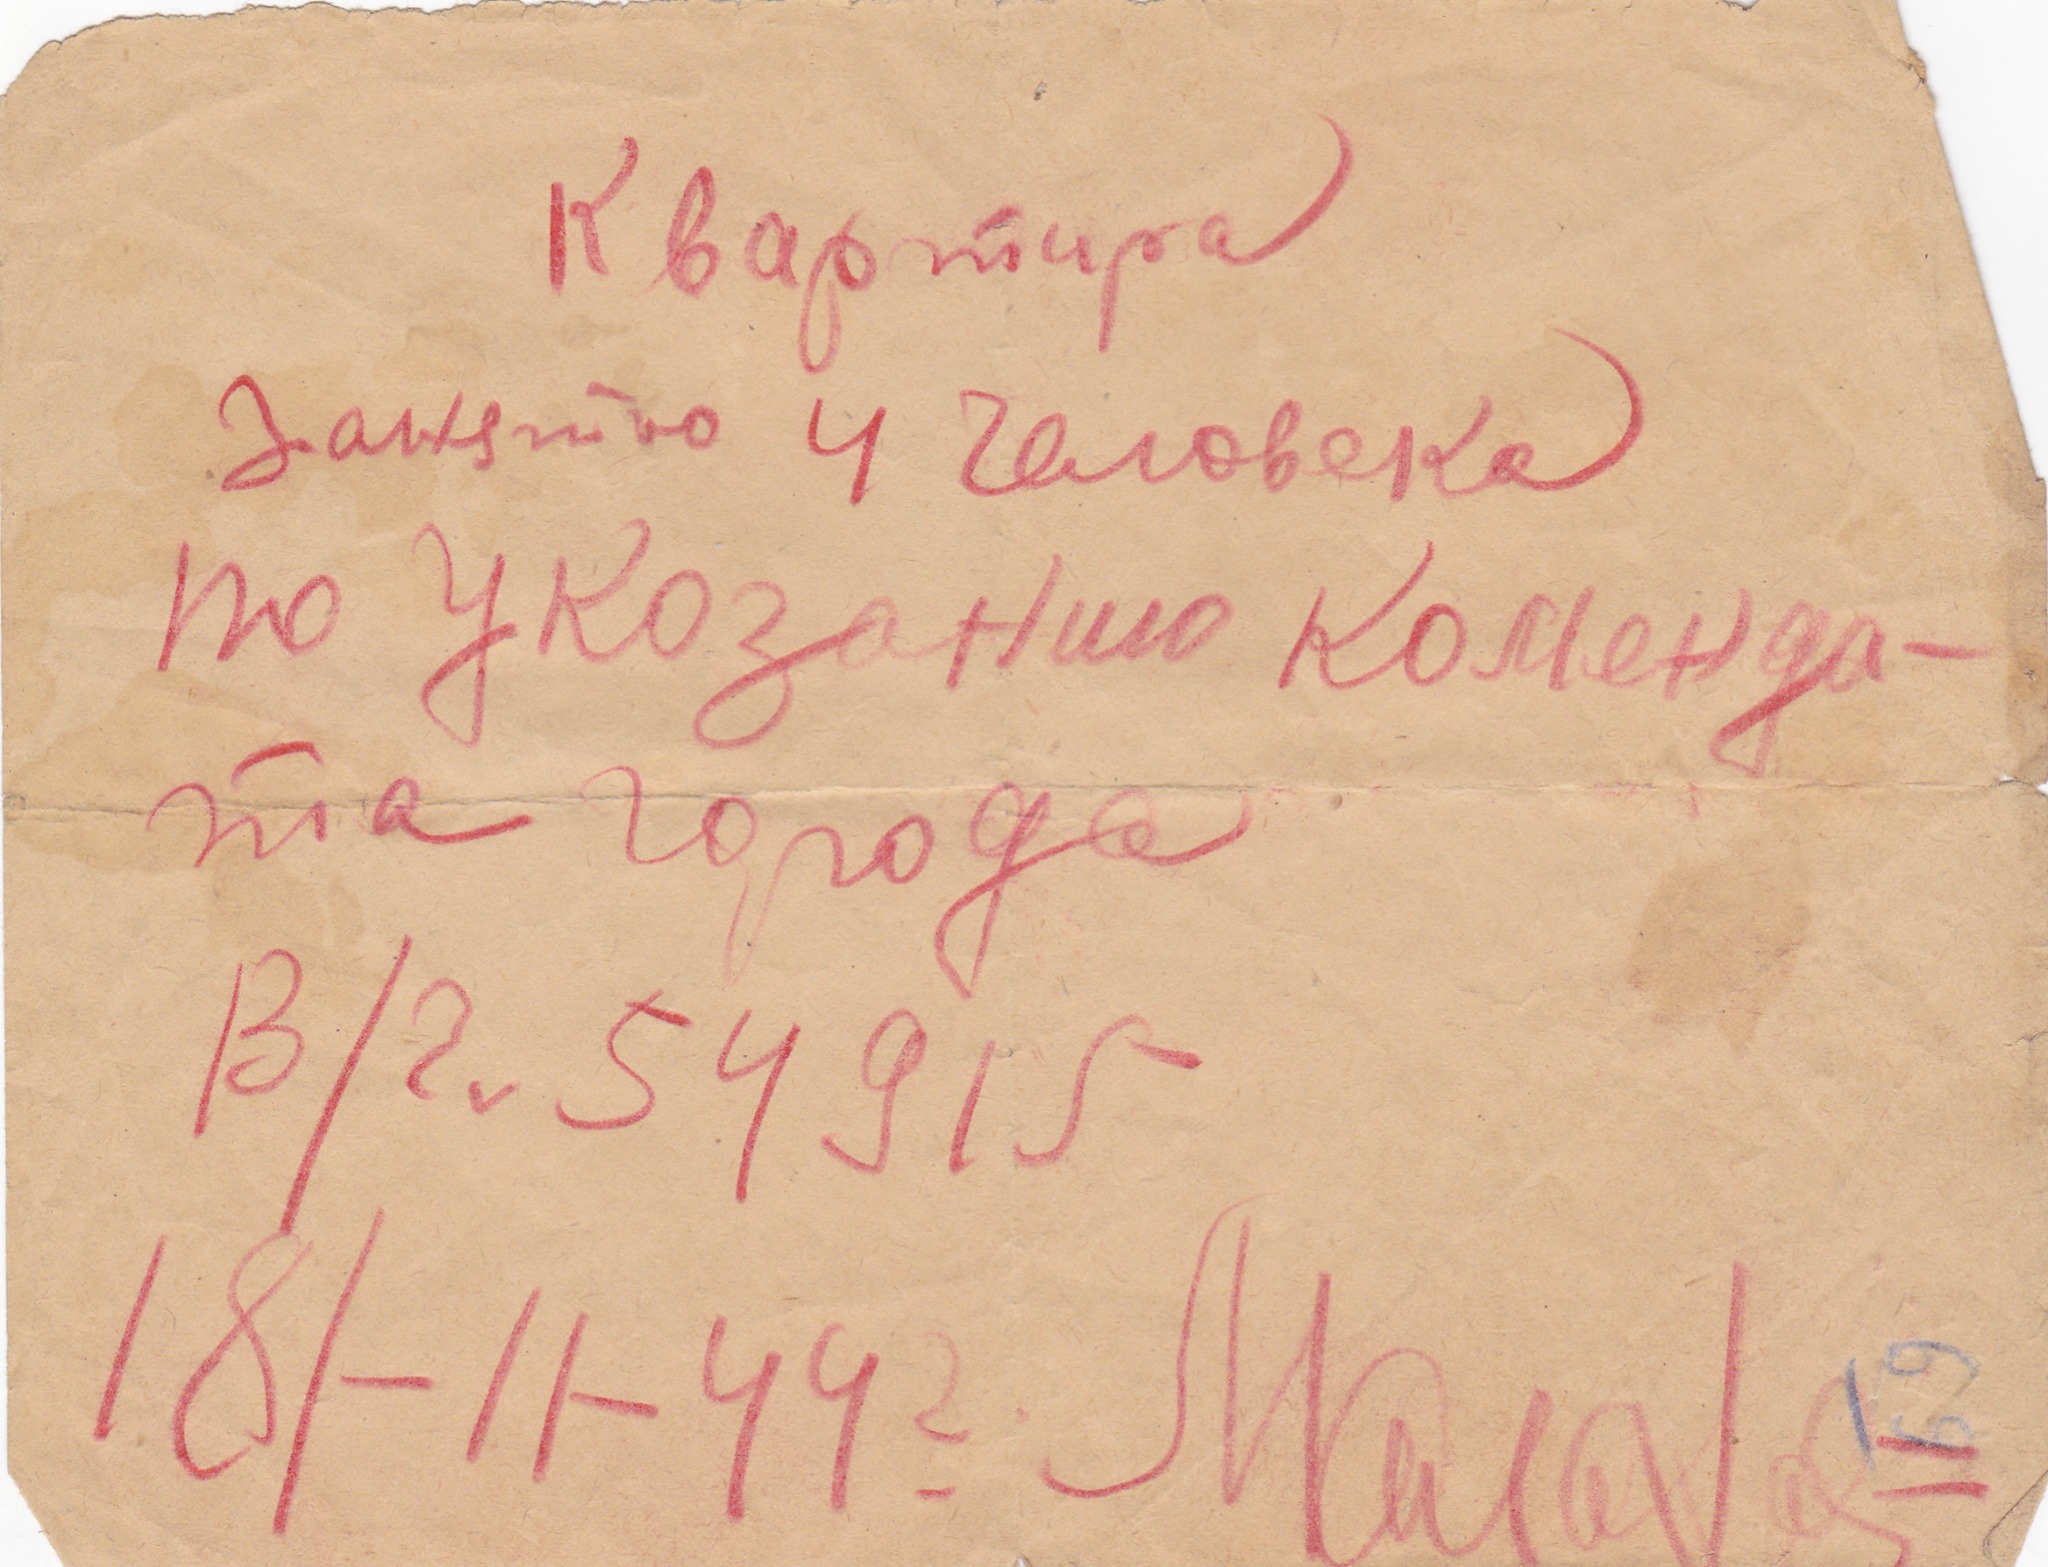 Квартира
занято 4 человека
по указанию коменда-
та города
В/ч. 54915
18/-11-44 г.
169